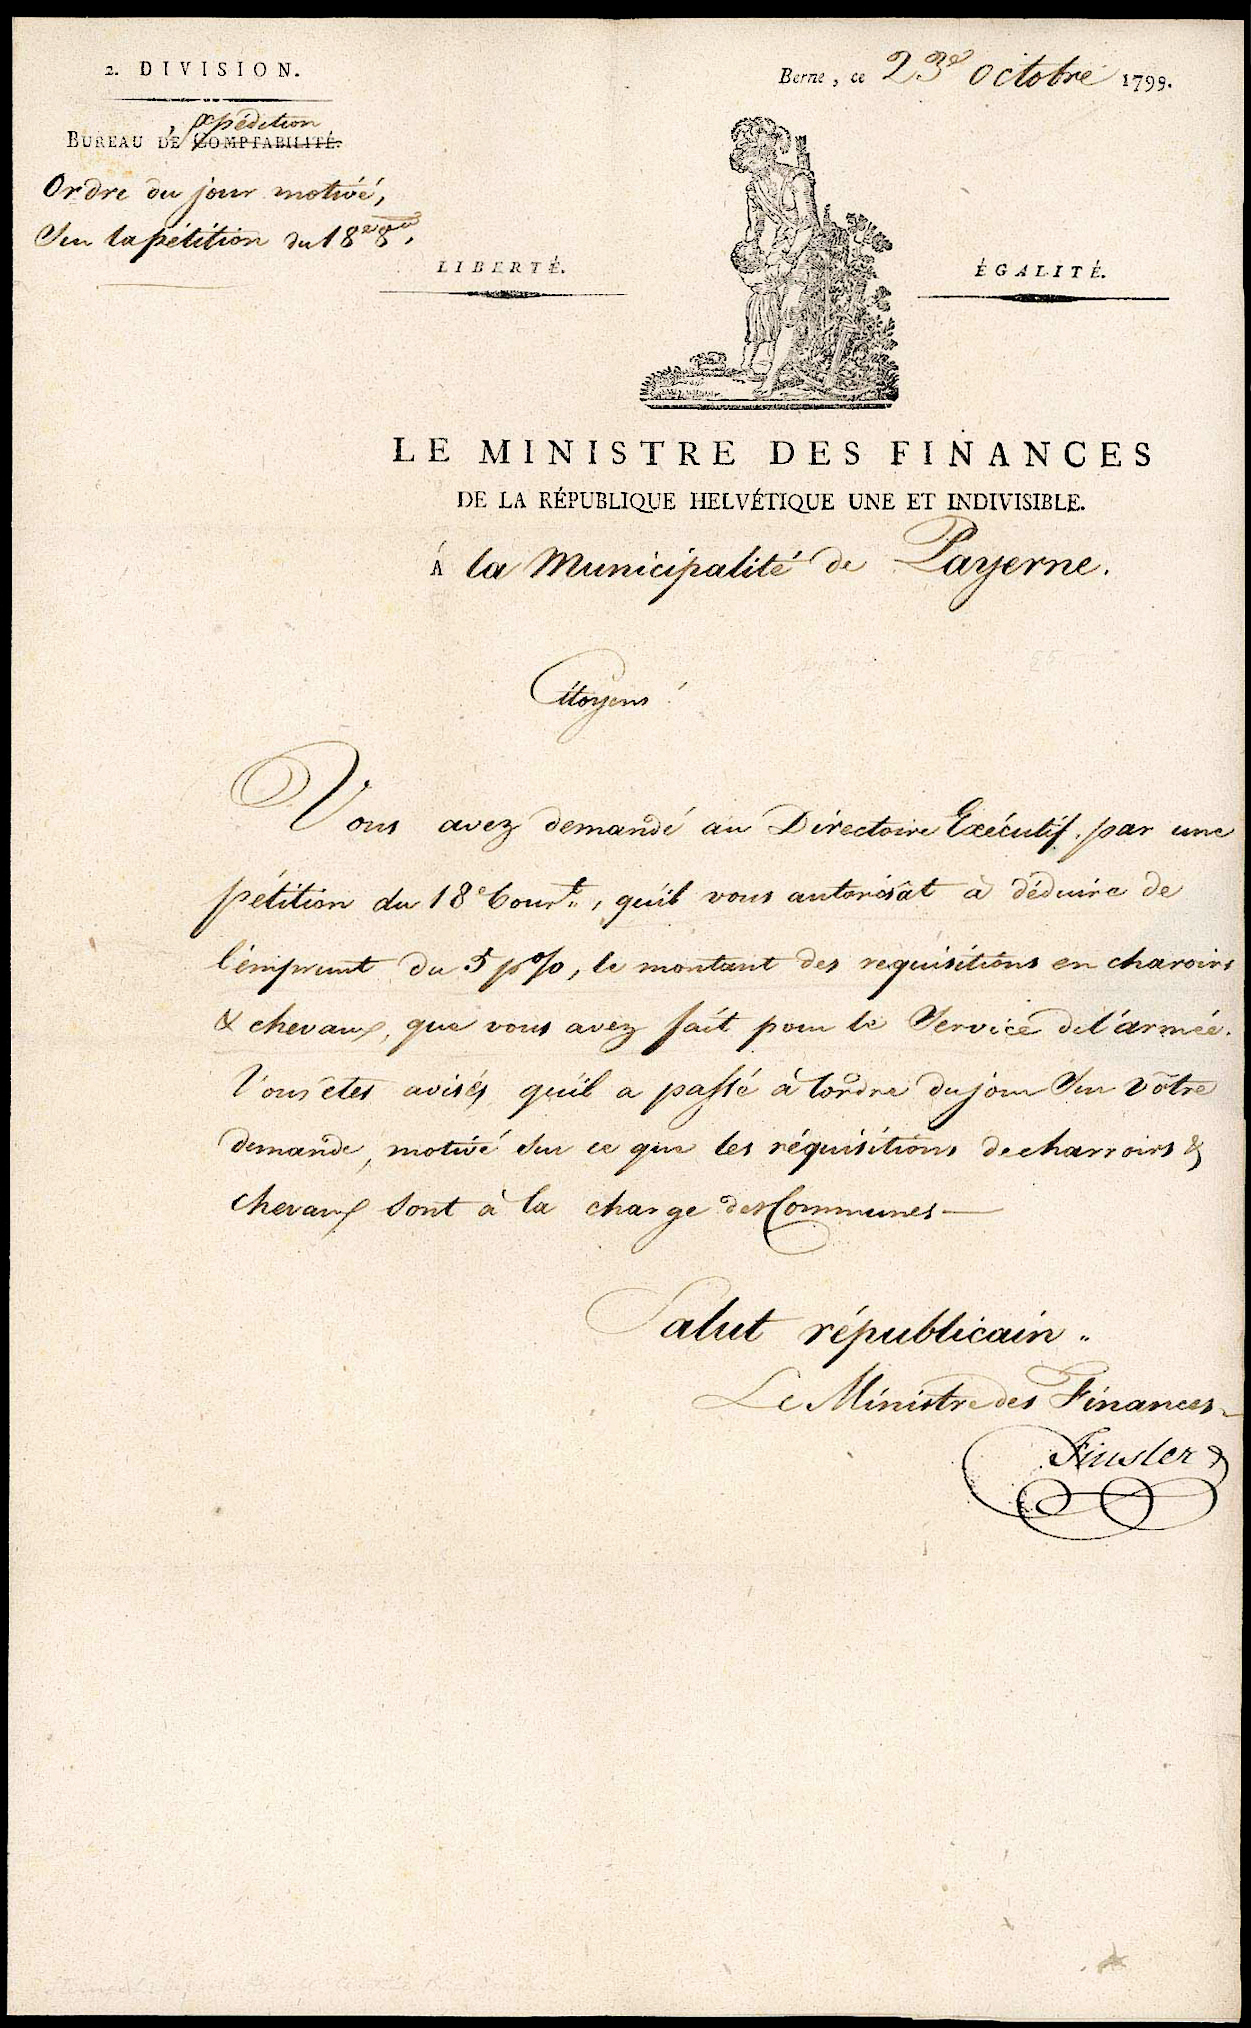 2. DIVISION.
Berne, ce 23e octobre 1799.
expédition
BUREAU DE COMPTABILITÉ.
Ordre du jour motivé,
Sur la pétition du 18e 8bre.
LIBERTÉ.
ÉGALITÉ.
LE MINISTRE DES FINANCES
DE LA RÉPUBLIQUE HELVÉTIQUE UNE ET INDIVISIBLE.
À la Municipalité de Payerne.
Citoyens!
Vous avez demandé au Directoire Exécutif, par une
pétition du 18e Court., qu'il vous autorisât à déduire de
l'emprunt du 5 p%, le montant des requisitions en charoirs
& chevaux, que vous avez fait pour le Service de l'armée.
Vous êtes avisés qu'il a passé à l'ordre du jour Sur vôtre
demande, motivé Sur ce que les réquisitions de charroirs &
chevaux Sont à la charge des Communes —
Salut républicain.
Le Ministre des Finances
Finsler